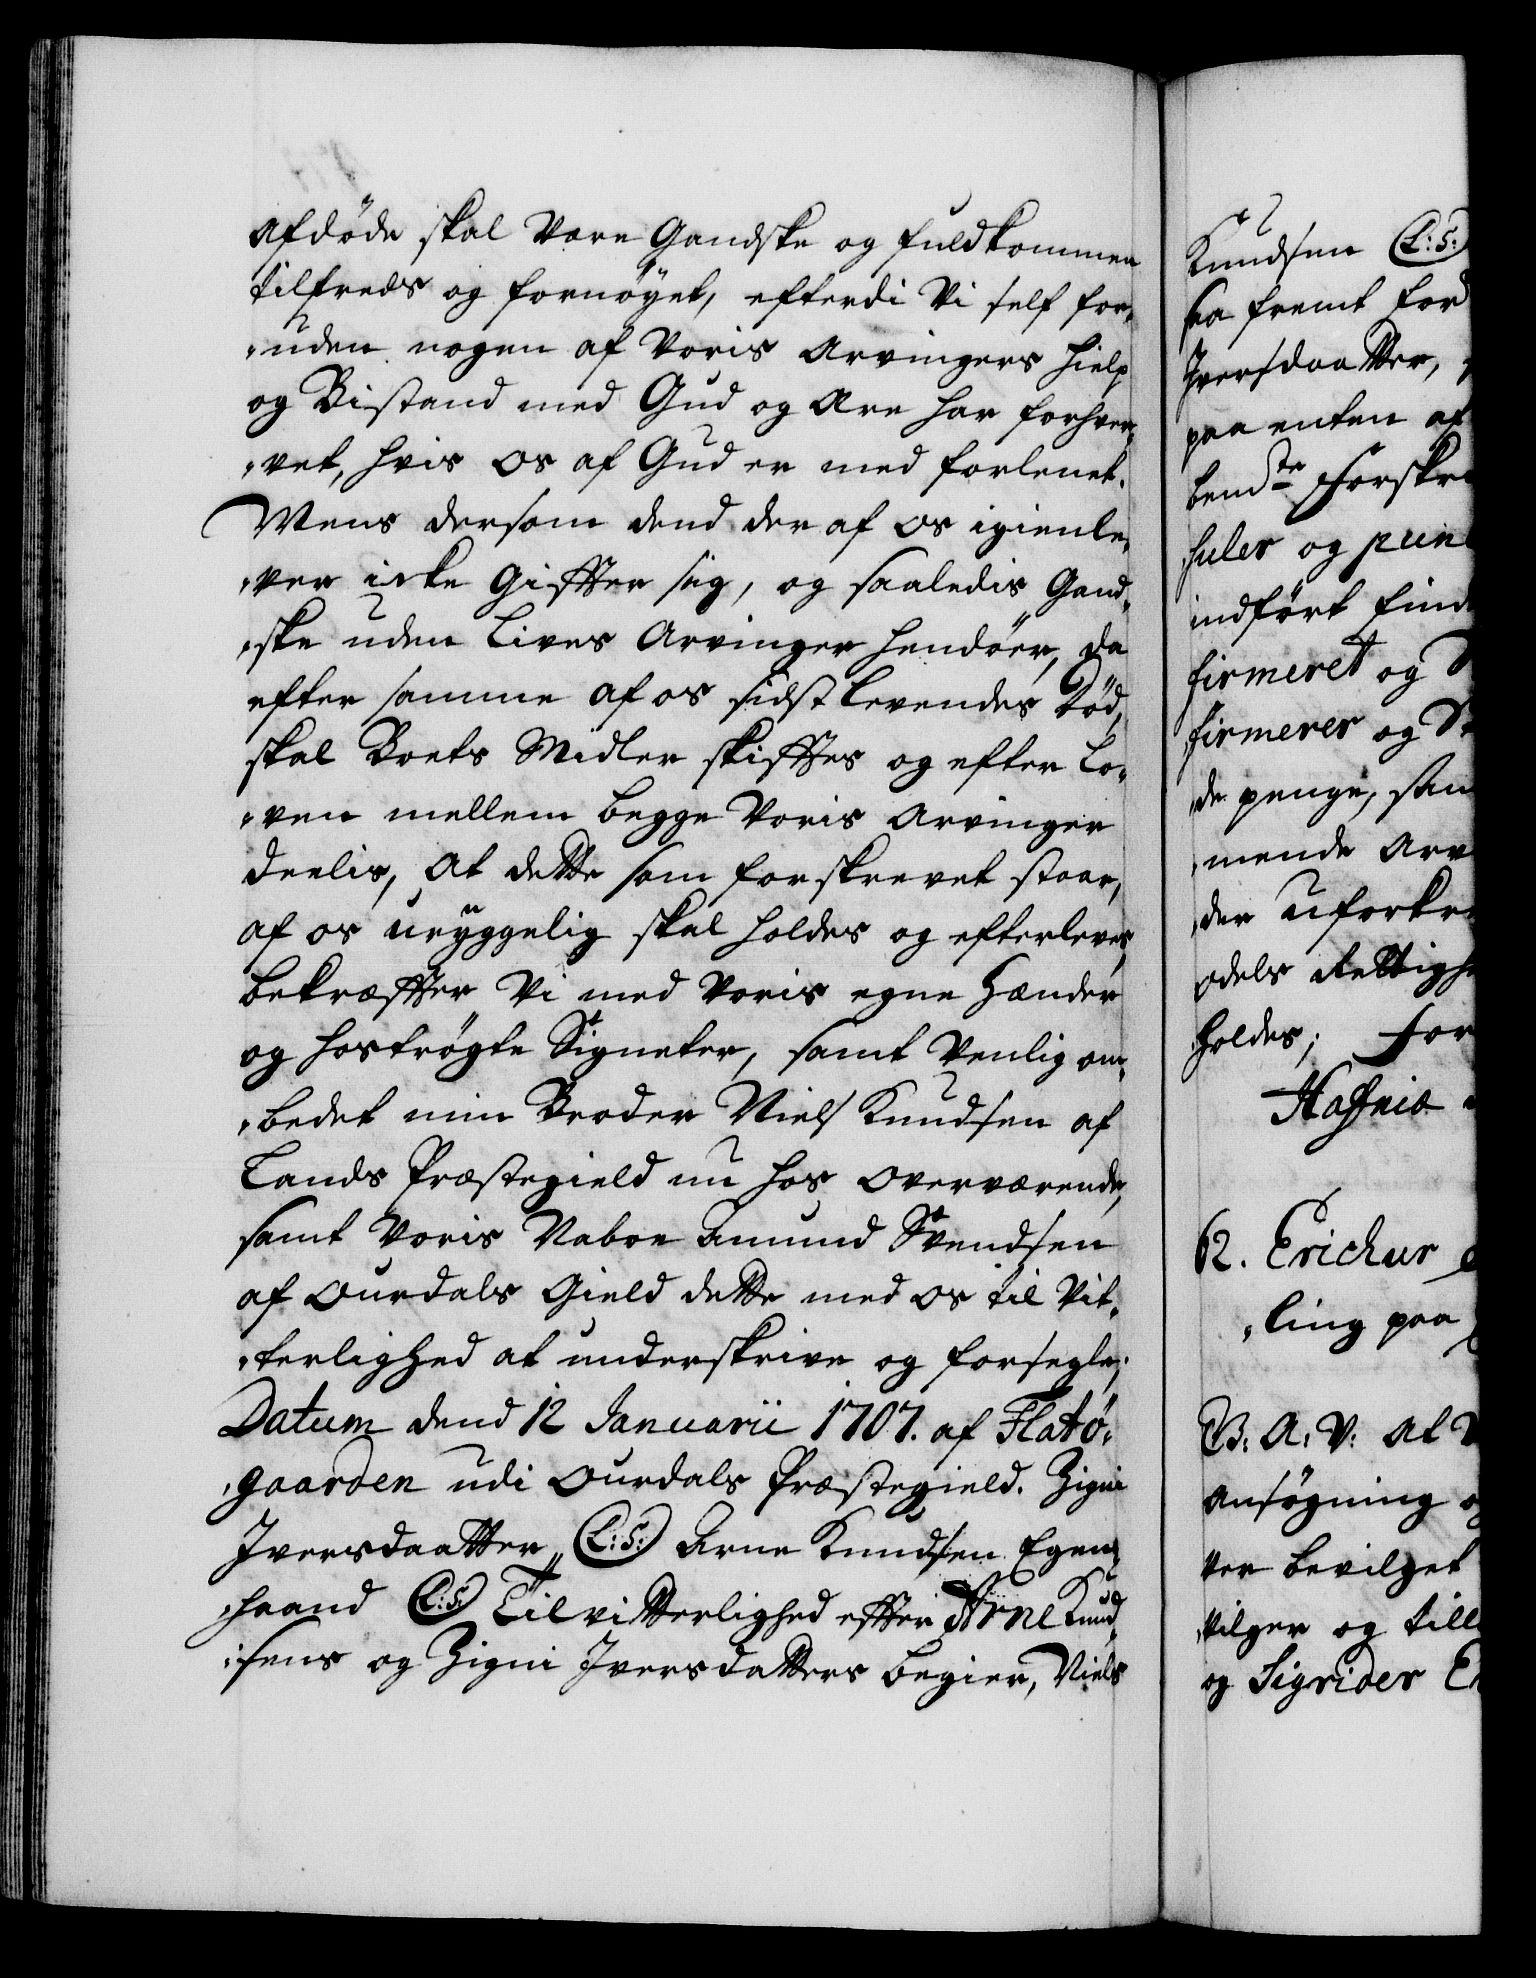 afdöde skal Være Gandske og fuldkommen
tilfreds og fornöyet, efterdi Vi self for„
„uden nogen af Voris Arvingers hielp
og Bistand med Gud og Ære har forhver„
„vet, hvis os af Gud er med forlenet.
Mens dersom dend der af os igienle„
„ver icke Giffter sig, og saaledis Gand„
„ske uden Lives Arvinger hendöer, da
efter samme af os sidst Levendes Död,
skal Boets Midler skifftes og efter Lo„
„ven mellem begge Voris Arvinger
deelis, At dette som forskrevet staar,
af os uryggelig skal holdes og efterleves,
bekræffter Vi med Voris egne Hænder
og hoströgte Signeter, samt Venlig om„
„bedet min Broder Niels Knudsen af
Lands Præstegield nu hos overværende,
samt Voris Naboe Amund Svendsen
af Ourdals Gield dette med os til Vit„
„terlighed at underskrive og forsegle;
Datum dend 12 Januarii 1707. af Flatö„
„gaarden udi Ourdals Præstegield. Zigni
Iversdaatter (L:S:) Arne Knudsen Egen„
„haand (L:S:) Til vitterlighed effter Arne Knud„
„sens og Zigni Iversdatters begier, Niels
Knudsen (L:S:)
saa fremt for
Iversdaatter,
paa enten af
bem.te Forskre
suler og pun
indfört find
firmeret og
firmerer og St
de penge, sam
mende Arv
der Uforkr
odels Rettighe
holdes; For
Hafniæ
62. Erichur
„ling paa
G: A: V: At V
Ansögning o
ter bevilget
vilger og till
og Sigrider E